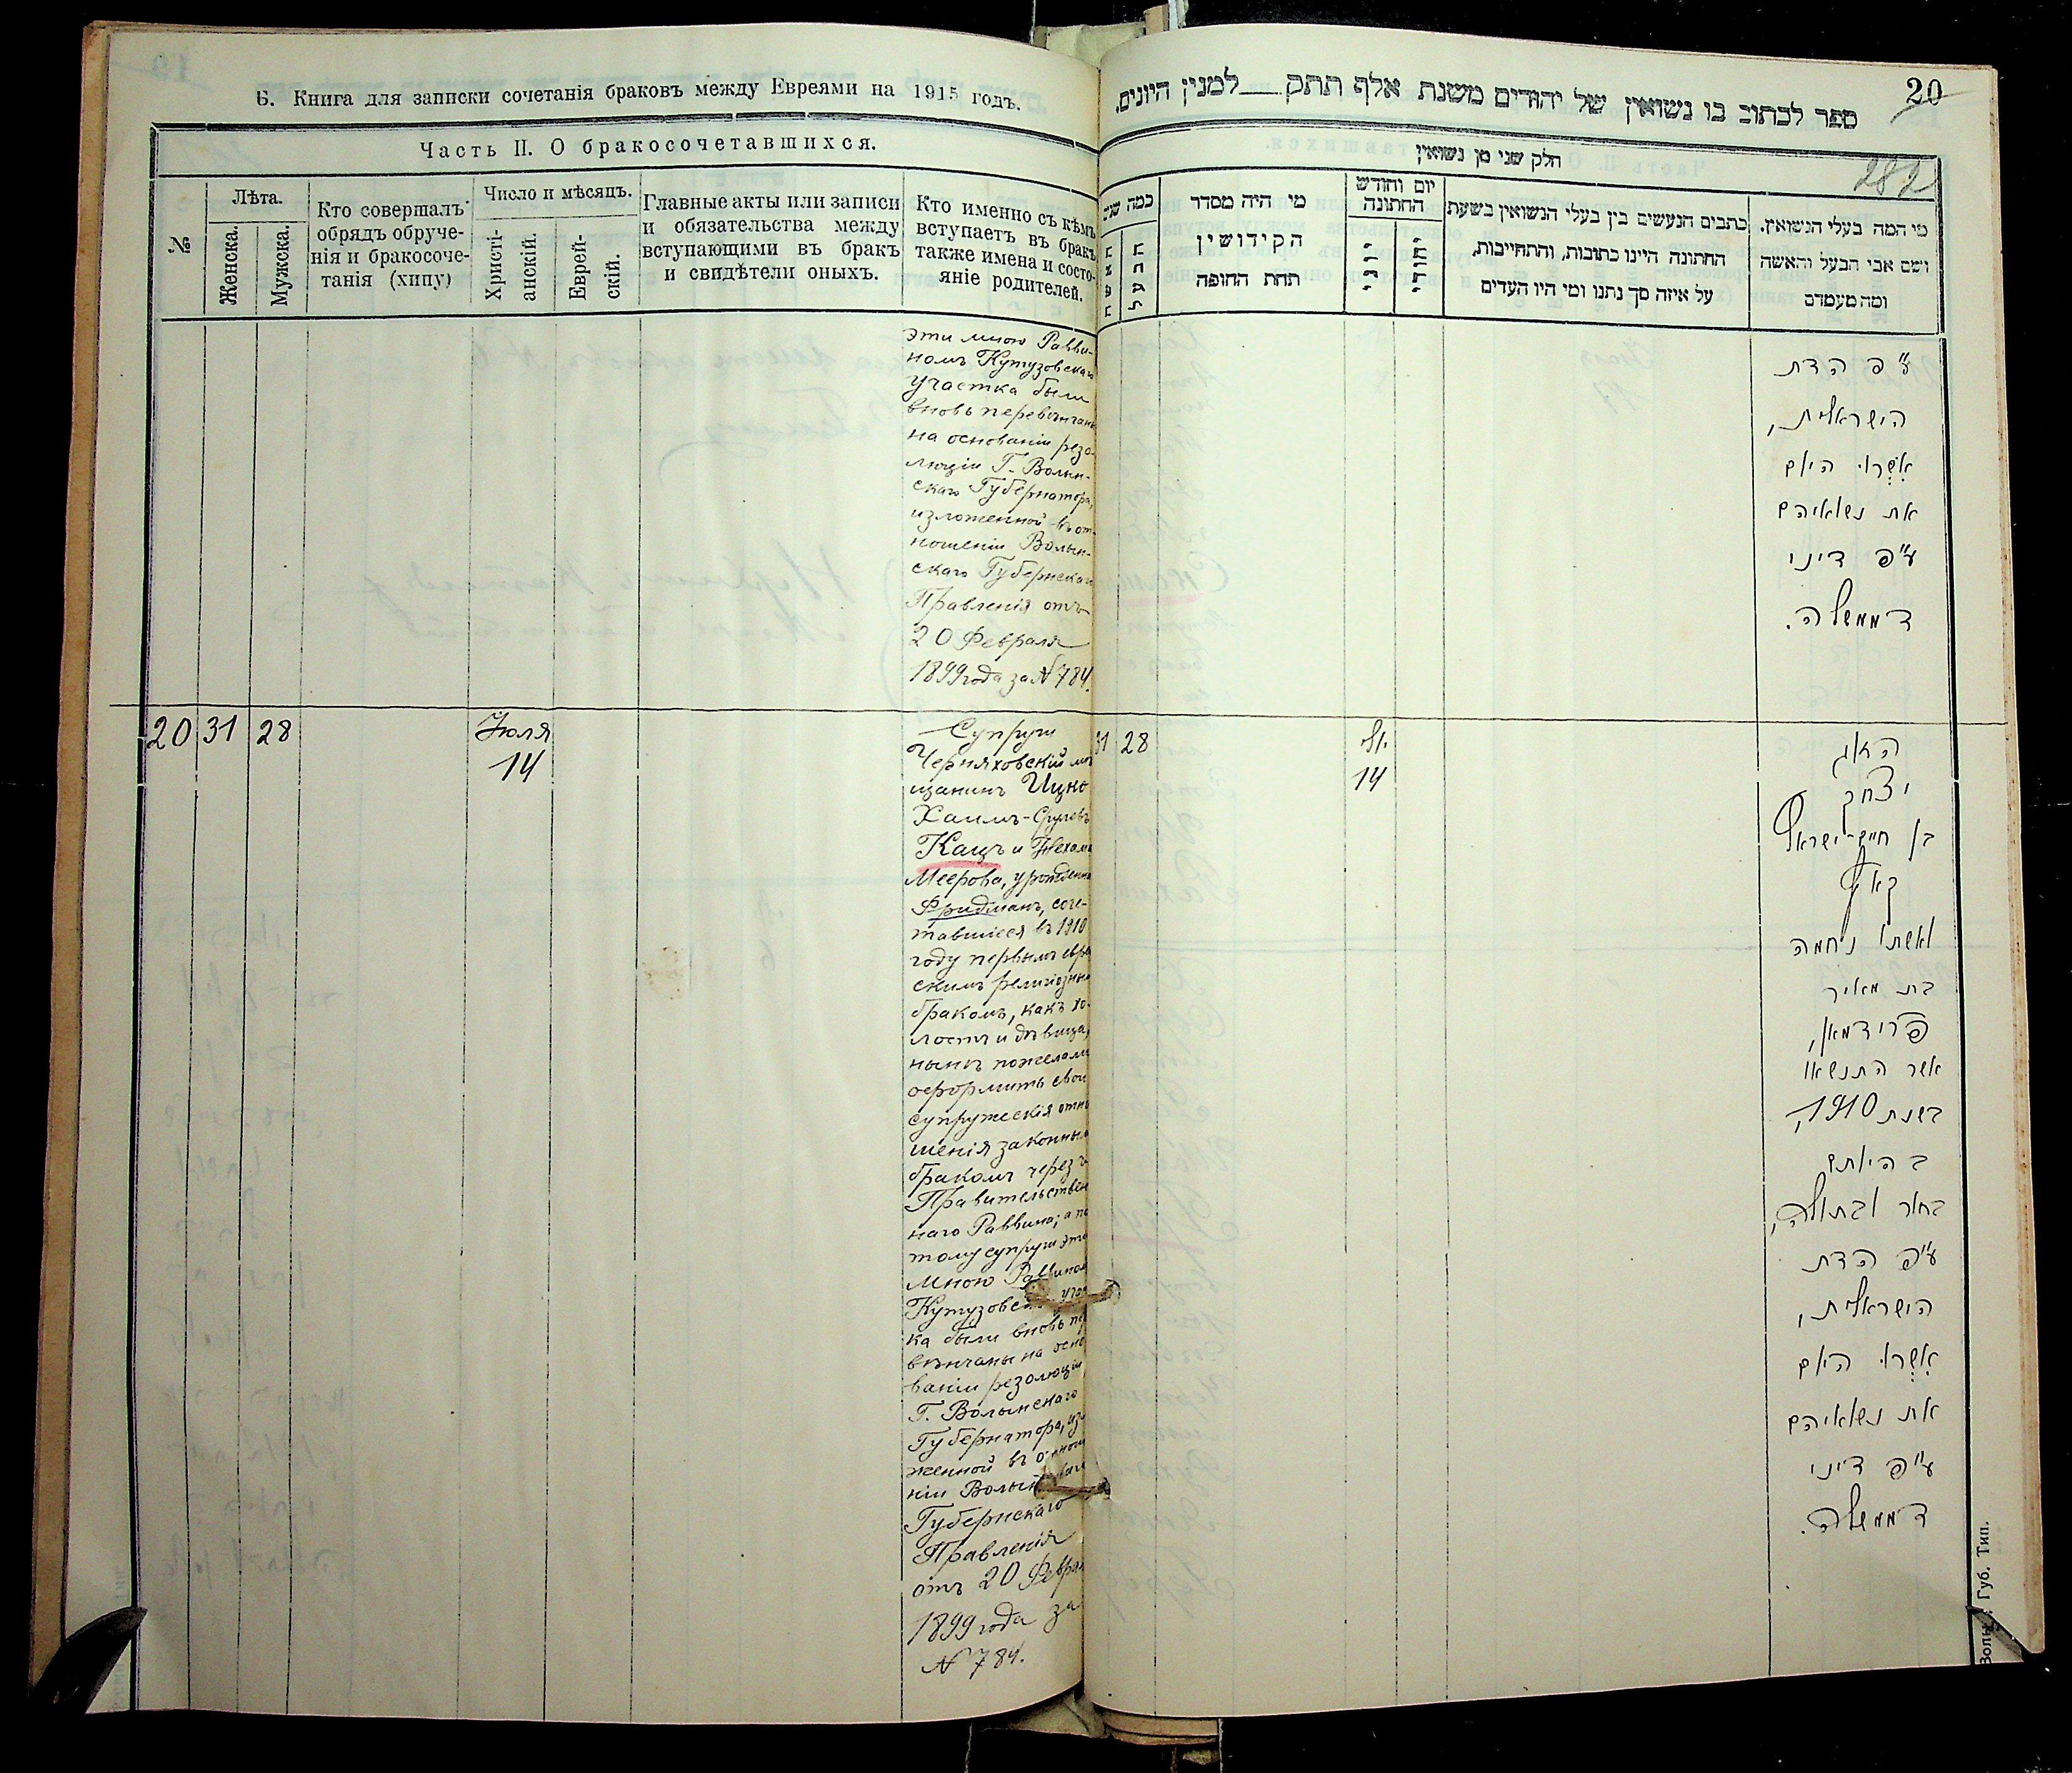 6. Книга для записки сочетанія браковъ между Евреями на 1915 годъ.
Часть II. О бракосочетавшихся.
№
Лѣта.
Женска.
Мужска.
Кто совершалъ
обрядъ обруче-
нія и бракосоче-
танія (хипу)
Число и мѣсяцъ.
Христі-
анскій.
Еврей-
скій.
Главные акты или записи
и обязательства между
вступающими въ бракъ
и свидѣтели оныхъ.
Кто именно съ кѣмъ
вступаетъ въ бракъ
также имена и состо-
яніе родителей.
эти мною Равви-
номъ Кутузовскаго
участка были
вновь перевѣнчаны
на основаніи резо-
люціи Г. Волын-
скаго Губернатора,
изложенной въ от-
ношеніи Волын-
скаго Губернскаго
Правленія отъ
20 Февраля
1899 года за № 784.
20 31 28
Іюля
14
Супруги
Черняховскій мѣ
щанинъ Ицко
Хаимъ-Срулевъ
Кацъ и Нехама
Меерова, урожденная
Фридманъ, соче-
тавшіеся въ 1910
году первымъ евре
скимъ религіознымъ
бракомъ, какъ хо-
лостъ и дѣвица,
нынѣ пожелали
оформить свои
супружескія отно
шенія законнымъ
бракомъ черезъ
Правительствен
наго Раввина; а по
тому супруги эти
мною Раввиномъ
Кутузовск учас
ка были вновь пе
вѣнчаны на осно
ваніи резолюціи
Г. Волынскаго
Губернатора, изло
женной въ отноше
ніи Волынскаго
Губернскаго
Правленія
отъ 20 Февраля
1899 года за
№ 784.
20
282
ספר לכתוב בו נשואין של יהודים משנת אלף תתק___למנין היונים.
חלק שני מן נשואין
מי המה בעלי הנשואין,
ושם אבי הבעל והאשה
ומה מעמדם
כתבים הנעשים בין בעלי הנשואין בשעת
החתונה היינו כתובות, והתחייבות,
על איזה סך נתנו ומי היו העדים
יום וחודש
החתונה
מי היה מסדר
הקידושין
תחת החופה
כמה שנים
ע"פ הדת
הישראלית,
אִשְּׁרוּ היום
את נשואיהם
ע"פ דיני
הממשלה.
31 28
יולי
14
הזוג
יצחק
בן חיים-ישראל
קאץ
ואשתו נחמה
בת מאיר
פרידמאן,
אשר התנשאו
בשנת 1910,
בהיותם
בחור ובתולה,
ע"פ הדת
הישראלית,
אִשְּׁרוּ היום
את נשואיהם
ע"פ דיני
הממשלה.
Губ. Тип.